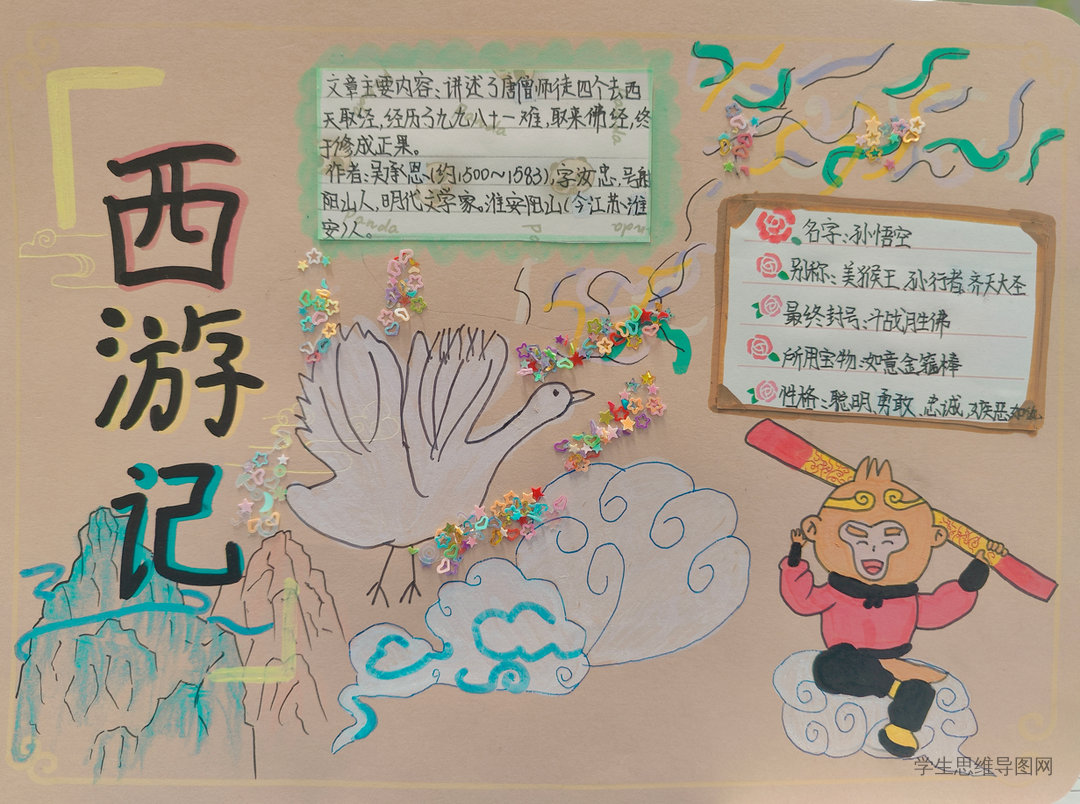 西游记
文章主要内容、讲述了唐僧师徒四个去西
天取经,经历了九九八十一难,取来佛经,终
于修成正果。
作者:吴承恩(约1500~1583),字汝忠,号射
阳山人,明代文学家。淮安阳山(今江苏淮
安)人。
panda
名字:孙悟空
别称:美猴王、孙行者、齐天大圣
最终封号:斗战胜佛
所用宝物:如意金箍棒
性格:聪明,勇敢、忠诚,嫉恶如仇
学生思维导图网